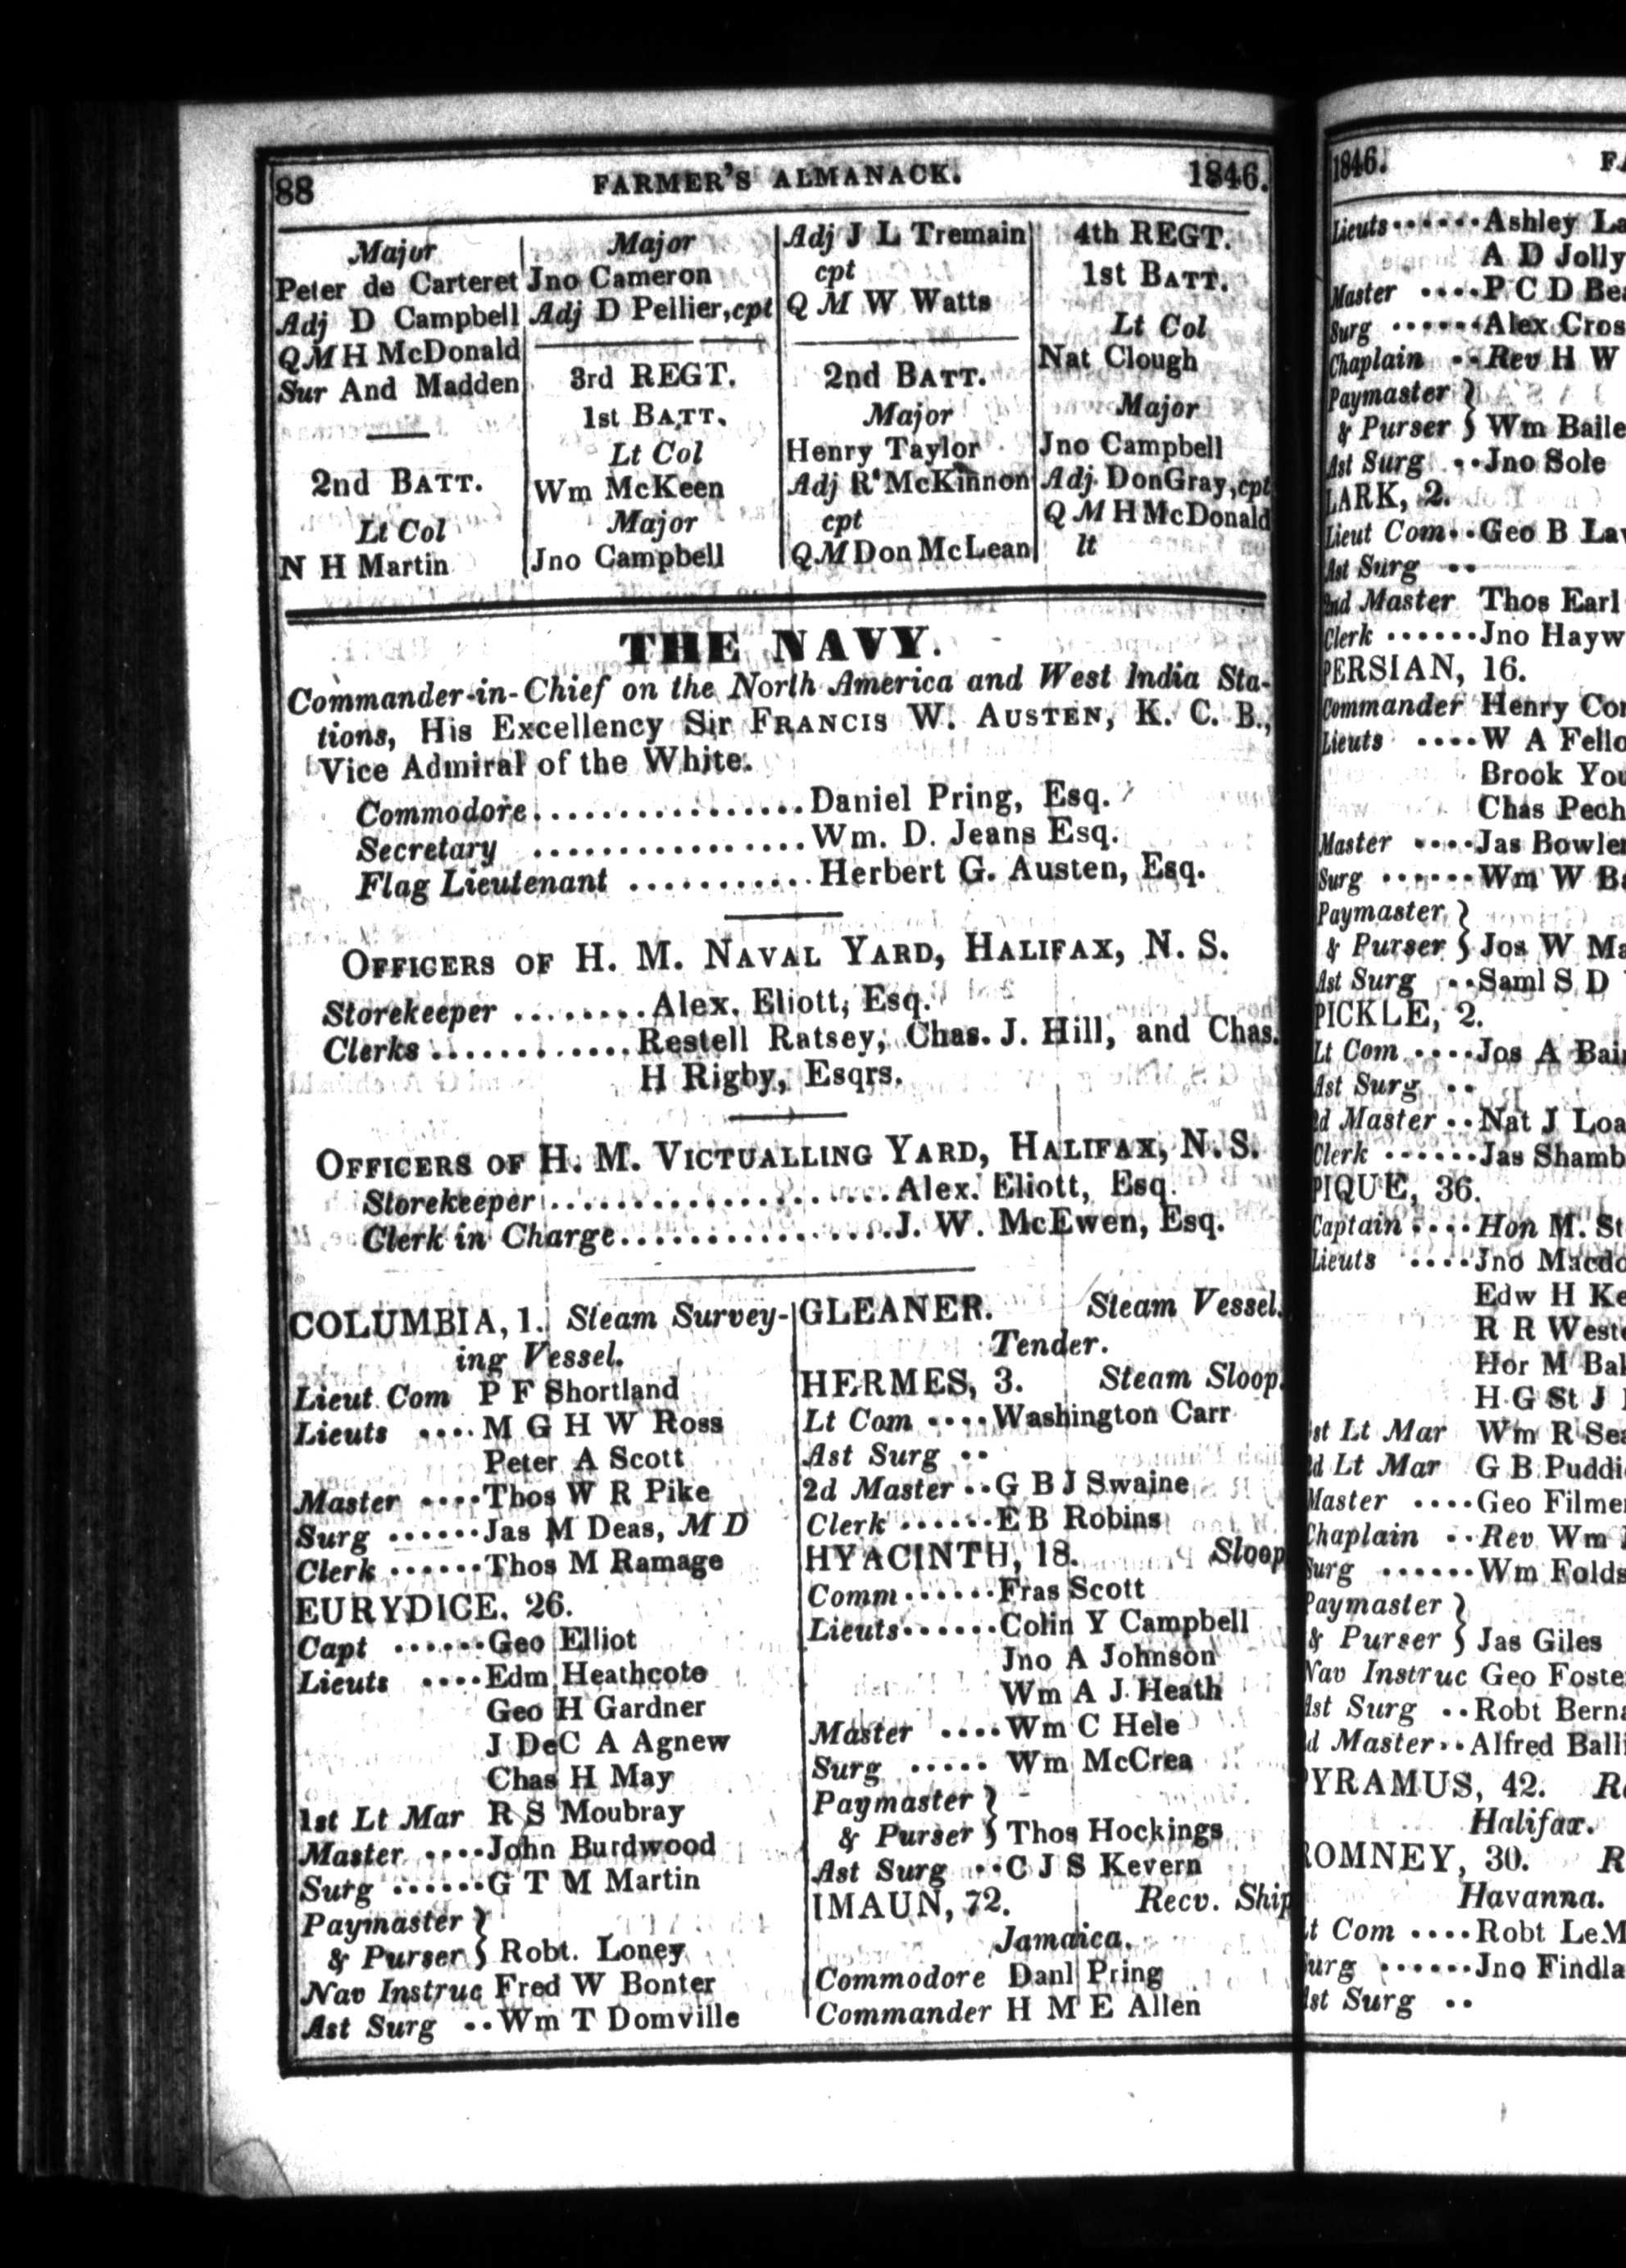 88 FARMER'S ALMANACK. 1846.
Major
Peter de Carteret
Adj D Campbell
Q M H McDonald
Sur And Madden
2nd BATT.
Lt Col
N H Martin
Major
Jno Cameron
Adj D Pellier, cpt
3rd REGT.
1st BATT.
Lt Col
Wm McKeen
Major
Jno Campbell
Adj J L Tremain
cpt
Q M W Watts
2nd BATT.
Major
Henry Taylor
Adj R McKinnon
cpt
Q M Don McLean
4th REGT.
1st BATT.
Lt Col
Nat Clough
Major
Jno Campbell
Adj Don Gray, cpt
Q M H McDonald
lt
THE NAVY.
Commander-in-Chief on the North America and West India Sta-
tions, His Excellency Sir FRANCIS W. AUSTEN, K. C. B.,
Vice Admiral of the White.
Commodore................Daniel Pring, Esq.
Secretary ................Wm. D. Jeans Esq.
Flag Lieutenant ...........Herbert G. Austen, Esq.
OFFICERS OF H. M. NAVAL YARD, HALIFAX, N. S.
Storekeeper ........Alex. Eliott, Esq.
Clerks............Restell Ratsey, Chas. J. Hill, and Chas.
H Rigby, Esqrs.
OFFICERS OF H. M. VICTUALLING YARD, HALIFAX, N. S.
Storekeeper.....................Alex. Eliott, Esq.
Clerk in Charge.................J. W. McEwen, Esq.
COLUMBIA, 1. Steam Survey-
ing Vessel.
Lieut Com P F Shortland
Lieuts ....M G H W Ross
Peter A Scott
Master ....Thos W R Pike
Surg ......Jas M Deas, M D
Clerk ......Thos M Ramage
EURYDICE. 26.
Capt ......Geo Elliot
Lieuts ....Edm Heathcote
Geo H Gardner
J DeC A Agnew
Chas H May
1st Lt Mar R S Moubray
Master ....John Burdwood
Surg ......G T M Martin
Paymaster }
& Purser } Robt. Loney
Nav Instruc Fred W Bonter
Ast Surg ..Wm T Domville
GLEANER. Steam Vessel.
Tender.
HERMES, 3. Steam Sloop.
Lt Com ....Washington Carr
Ast Surg ..
2d Master ..G B J Swaine
Clerk ......E B Robins
HYACINTH, 18. Sloop
Comm......Fras Scott
Lieuts......Colin Y Campbell
Jno A Johnson
Wm A J Heath
Master ....Wm C Hele
Surg ..... Wm McCrea
Paymaster }
& Purser } Thos Hockings
Ast Surg ..C J S Kevern
IMAUN, 72. Recv. Ship
Jamaica.
Commodore Danl Pring
Commander H M E Allen
1846.
Lieuts......Ashley
A D Jolly
Master ....P C D
Surg ......Alex
Chaplain ..Rev H W
Paymaster }
& Purser } Wm
Ast Surg ..Jno Sole
LARK, 2.
Lieut Com..Geo B
Ast Surg ..
2nd Master Thos Earl
Clerk ......Jno
PERSIAN, 16.
Commander Henry
Lieuts ....W A
Brook
Chas
Master ....Jas
Surg ......Wm W
Paymaster }
& Purser } Jos W
Ast Surg ..Saml S D
PICKLE, 2.
Lt Com ....Jos A
Ast Surg ..
2d Master ..Nat J
Clerk ......Jas
PIQUE, 36.
Captain ....Hon M.
Lieuts ....Jno
Edw H
R R
Hor M
H G St J
1st Lt Mar Wm R
2d Lt Mar G B
Master ....Geo
Chaplain ..Rev Wm
Surg ......Wm
Paymaster }
& Purser } Jas Giles
Nav Instruc Geo
Ast Surg ..Robt
2d Master..Alfred
PYRAMUS, 42.
Halifax.
ROMNEY, 30.
Havanna.
Lt Com ....Robt
Surg ......Jno
Ast Surg ..